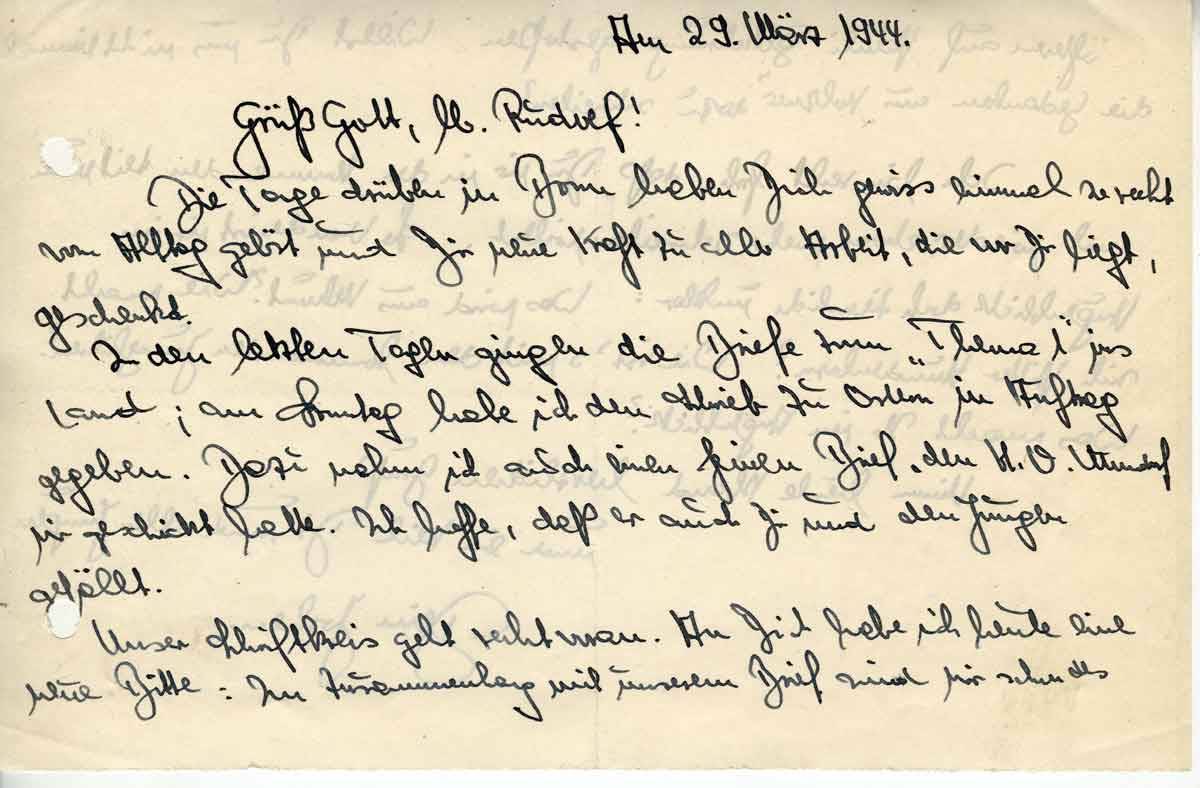 Am 29. März 1944.
Grüß Gott, lb. Rudolf!
Die Tage drüben in Bonn haben Dich gewiss einmal so recht
vom Alltag gelöst und Dir neue Kraft zu aller Arbeit, die vor Dir liegt,
geschenkt.
In den letzten Tagen gingen die Briefe zum „Thema 1" ins
Land; am Sonntag habe ich den Schrieb zu Ostern in Auftrag
gegeben. Dazu nahm ich auch einen feinen Brief, den K. O.
mir geschickt hatte. Ich hoffe, daß er auch Dir und den Jungen
gefällt.
Unser Schriftkreis geht recht voran. An Dich habe ich heute eine
neue Bitte: Im Zusammenhang mit unserem Brief sind wir schon des